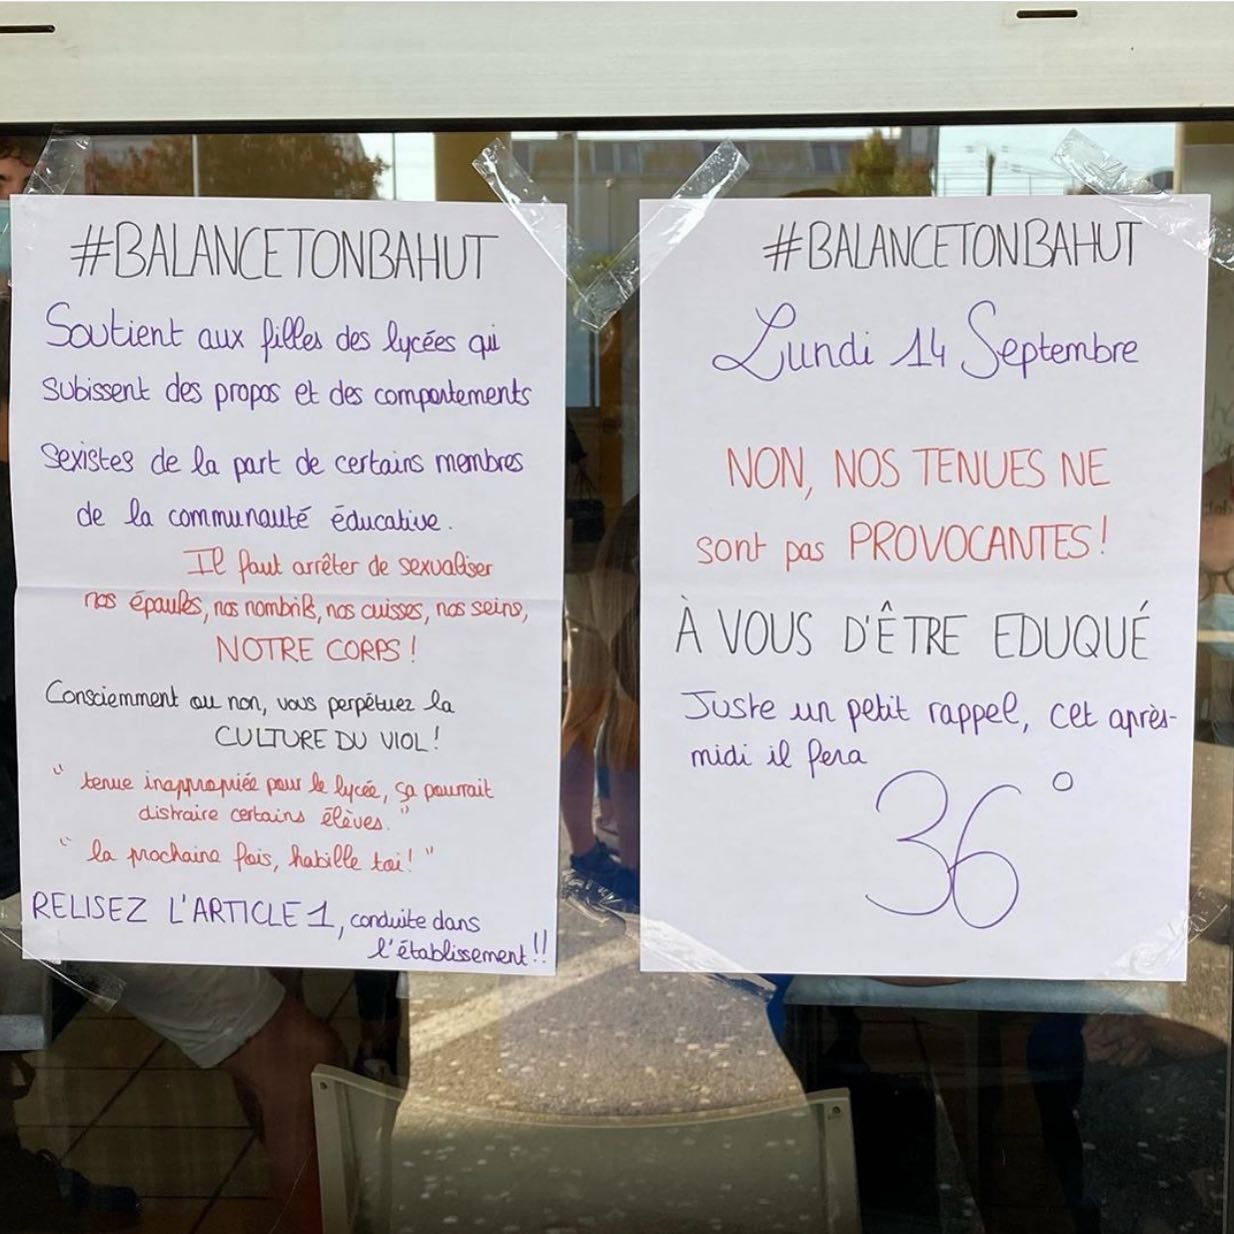 #BALANCETONBAHUT
Soutient aux filles des lycées qui
subissent des propos et des comportements
sexistes de la part de certains membres
de la communauté éducative.
Il faut arrêter de sexualiser
nos épaules, nos nombrils, nos cuisses, nos seins,
NOTRE CORPS !
Consciemment ou non, vous perpétuez la
CULTURE DU VIOL !
" tenue inappropriée pour le lycée, ça pourrait
distraire certains élèves. "
" la prochaine fois, habille toi ! "
RELISEZ L'ARTICLE 1, conduite dans
l'établissement !!
#BALANCETONBAHUT
Lundi 14 Septembre
NON, NOS TENUES NE
sont pas PROVOCANTES !
À VOUS D'ÊTRE EDUQUÉ
Juste un petit rappel, cet après-
midi il fera
36°